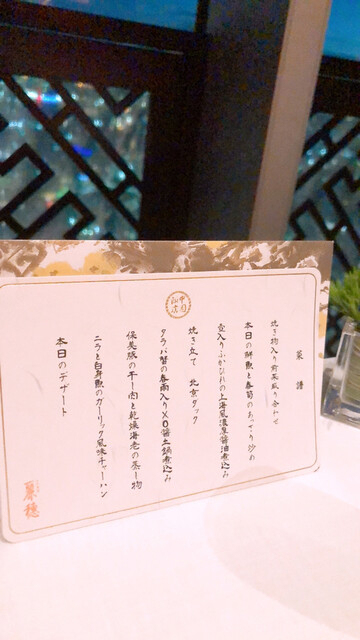 菜譜
焼き物入り前菜取り合わせ
本日の鮮魚と春筍のあっさり炒め
壺入りふかひれの上海風濃厚醤油煮込み
焼き立て 北京ダック
タラバ蟹の春雨入りXO醤土鍋煮込み
保美豚の干し肉と乾燥海老の蒸し物
ニラと白身魚のガーリック風味チャーハン
本日のデザート